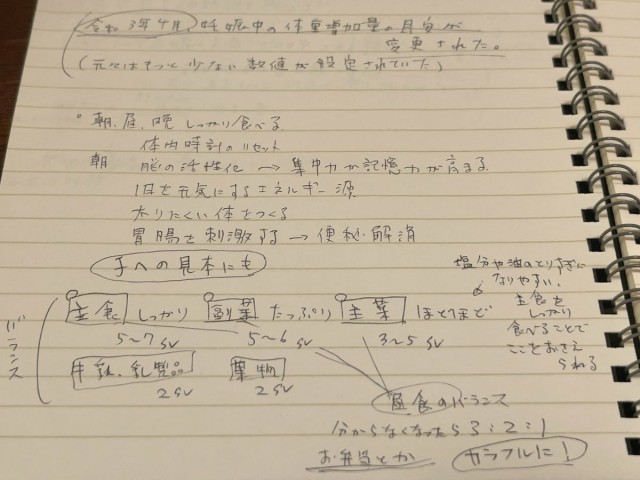 令和3年4月、妊娠中の体重増加量の目安が
変更された。
(元々はもっと少ない数値が設定されていた)
。朝、昼、晩 しっかり食べる
体内時計のリセット
朝 脳の活性化 → 集中力か記憶力が高まる
1日を元気にするエネルギー源
太りにくい体をつくる
胃腸を刺激する → 便秘解消
子への見本にも
塩分や油のとりすぎに
なりやすい。
主食を
しっかり
食べることで
ここをおさえ
られる
バランス
主食 しっかり 副菜 たっぷり 主菜 ほどほど
5〜7SV 5〜6SV 3〜5SV
牛乳、乳製品 果物
2SV 2SV
昼食のバランス
分からなくなったら 3:2:1
お弁当とか カラフルに!